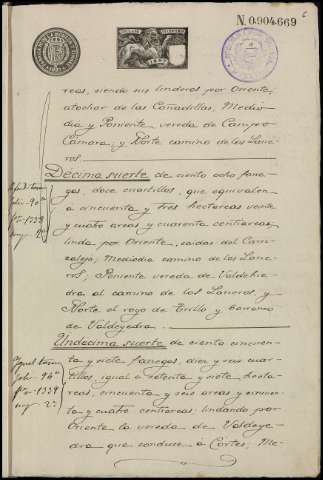 N. 0.904.669
reas, siendo sus linderos por Oriente,
atochar de las Cañadillas, Medio-
dia y Poniente vereda de Campo
Cámara, y Norte camino de los Lane-
ros.
Décima suerte de ciento ocho fane-
gas, doce cuartillos, que equivalen
a cincuenta y tres hectareas veinte
y cuatro areas y cuarenta centiareas;
linda por Oriente, caidas del
Mediodia camino de los Lane-
ros; Poniente vereda de
al camino de los Laneros, y
Norte el royo de Trillo y barranco
de Valdeyedra.
Undécima suerte de ciento cincuen-
ta y siete fanegas, diez y seis cuar-
tillos, igual a setenta y siete hecta-
reas, cincuenta y seis areas y cincuen-
ta y cuatro centiareas; lindando por
Oriente la vereda de Valdeye-
dra que conduce á Cortes, Me-
folio 90
fª 1338
Igual tomo
folio 94
fª 1339